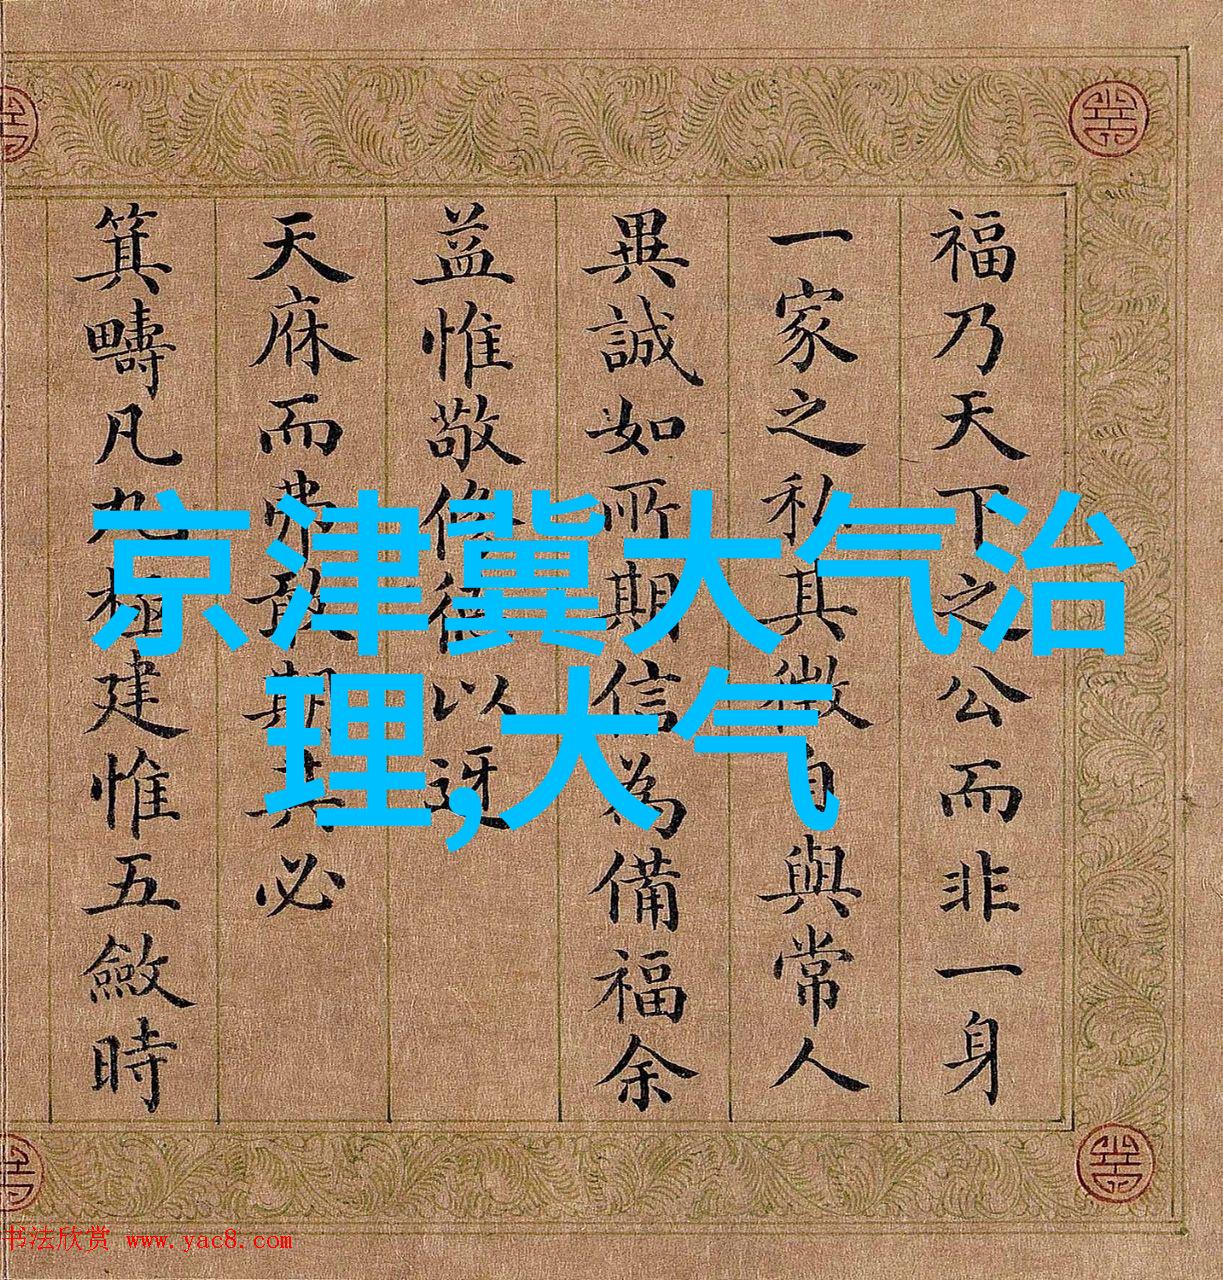 福乃天下之公而非一身
一家之私其徵自與常人
異誠如所期信為備福余
益惟敬修德以迓
天庥而弗敢期其必
箕疇凡九極建惟五斂時
京津冀大气治
理,大气
书法欣赏 www.yac8.com